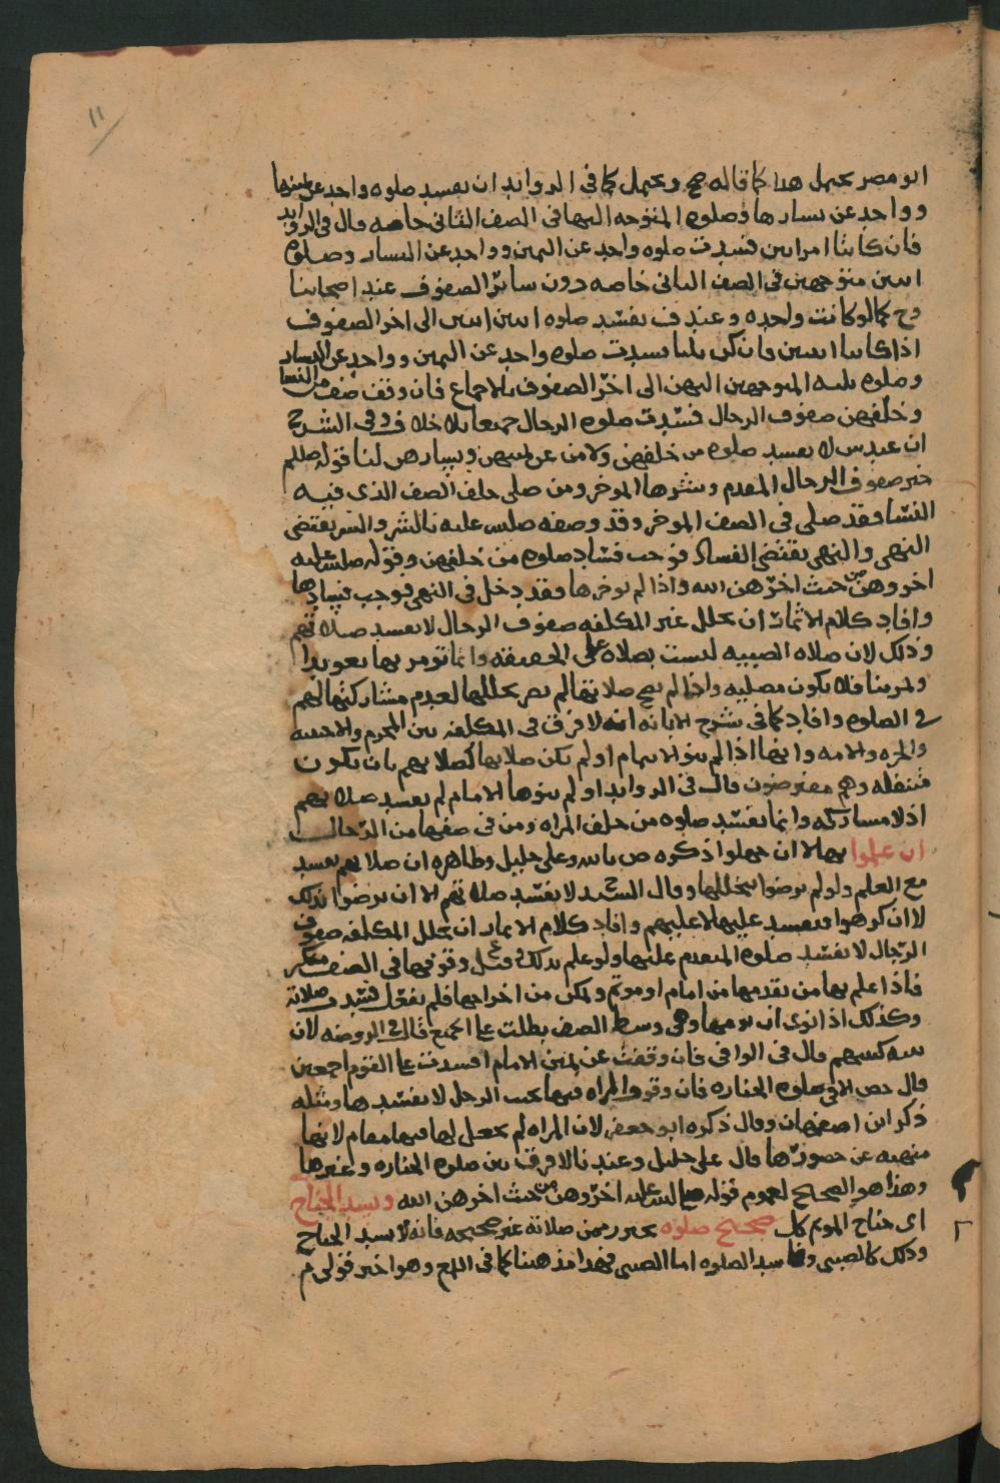 ١١
ابو مضر يحتمل هذا كما قاله صح ويحتمل كما في الزوايد ان تفسد صلوه واحد عن يمينها
وواحد عن يسارها وصلوه المتوجه اليها في الصف الثاني خاصه قال في الزوايد
فان كانتا امراتين فسدت صلوه واحد عن اليمين وواحد عن اليسار وصلوه
اثنين متوجهين في الصف الثاني خاصه دون سائر الصفوف عند اصحابنا
وح كما لو كانت واحده وعند ف تفسد صلوه اثنين اثنين الى اخر الصفوف
اذا كانتا اثنتين فان كن ثلثا فسدت صلوه واحد عن اليمين وواحد عن اليسار
وصلوه ثلثه المتوجهين اليهن الى اخر الصفوف بالاجماع فان وقف صف من النسا
وخلفهن صفوف الرجال فسدت صلوه الرجال جميعا بلا خلاف وفي الشرح
ان عند س لا تفسد صلوه من خلفهن ولا من عن يمينهن ويسارهن لنا قوله صللم
خير صفوف الرجال المقدم وشرها الموخر ومن صلى خلف الصف الذي فيه
النسا فقد صلى في الصف الموخر وقد وصفه صلى الله عليه بالشر والشر يقتضي
النهي والنهي يقتضي الفساد فوجب فساد صلوه من خلفهن وقوله صلى الله عليه
اخروهن من حيث اخرهن الله واذا لم يوخرها فقد دخل في النهي فوجب فسادها
وافاد كلام الاثمار ان تخلل غير المكلفه صفوف الرجال لا تفسد صلاتهم
وذلك لان صلاه الصبيه ليست بصلاه على الحقيقه وانما تومر بها تعويدا
وتمرينا فلا تكون مصليه واذا لم تصح صلاتها لم يضر تخللها لعدم مشاركتها لهم
في الصلوه وافاد كما في شرح الابانه انه لا فرق في المكلفه بين المحرم والاجنبيه
والحره والامه وانها اذا لم تنو الايتمام او لم تكن صلاتها كصلاتهم بان تكون
متنفله وهم مفترضون قال في الزوايد او لم ينوها الامام لم تفسد صلاتهم
اذ لا مشاركه وانما تفسد صلوه من خلف المراه ومن في صفها من الرجال
ان علموا بها لا ان جهلوا ذكره ص بالله وعلي خليل وظاهره ان صلاتهم تفسد
مع العلم ولو لم يرضوا بتخللها وقال السيد ح لا تفسد صلاتهم الا ان يرضوا بذلك
لا ان كرهوا فتفسد عليها لا عليهم وافاد كلام الاثمار ان تخلل المكلفه صفوف
الرجال لا تفسد صلوه المتقدم عليها ولو علم بذلك وقيل ع وقوفها في الصف منكر
فاذا علم بها من تقدمها من امام او موتم وتمكن من اخراجها فلم يفعل فسدت صلاته
وكذلك اذا نوى ان يومها وهي وسط الصف بطلت على الجميع قال في الروضه لان
نيته كنيتهم قال في الوافي فان وقفت عن يمين الامام افسدت على القوم اجمعين
قال حص الا في صلوه الجنازه فان وقوف المراه فيها بجنب الرجل لا تفسدها ومثله
ذكر ابن اصفهان وقال ذكره ابو جعفر لان المراه لم يجعل لها فيها مقام لانها
منهيه عن حضورها قال علي خليل وعندنا لا فرق بين صلوه الجنازه وغيرها
وهذا هو الصحيح لعموم قوله صلى الله عليه اخروهن من حيث اخرهن الله ويسد الجناح
اي جناح الموتم كل صحيح صلوه يحترز ممن صلاته غير صحيحه فانه لا يسد الجناح
وذلك كالصبي وفاسد الصلوه اما الصبي فهذا مذهبنا كما في اللمع وهو اخير قولي م